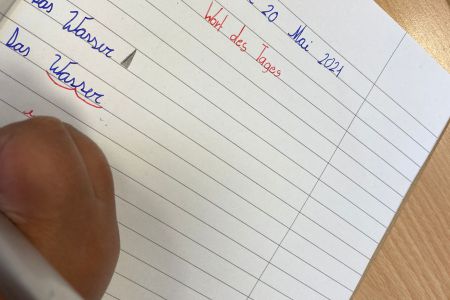 20 Mai 2021
Wort des Tages
Das Wasser
Das Wasser